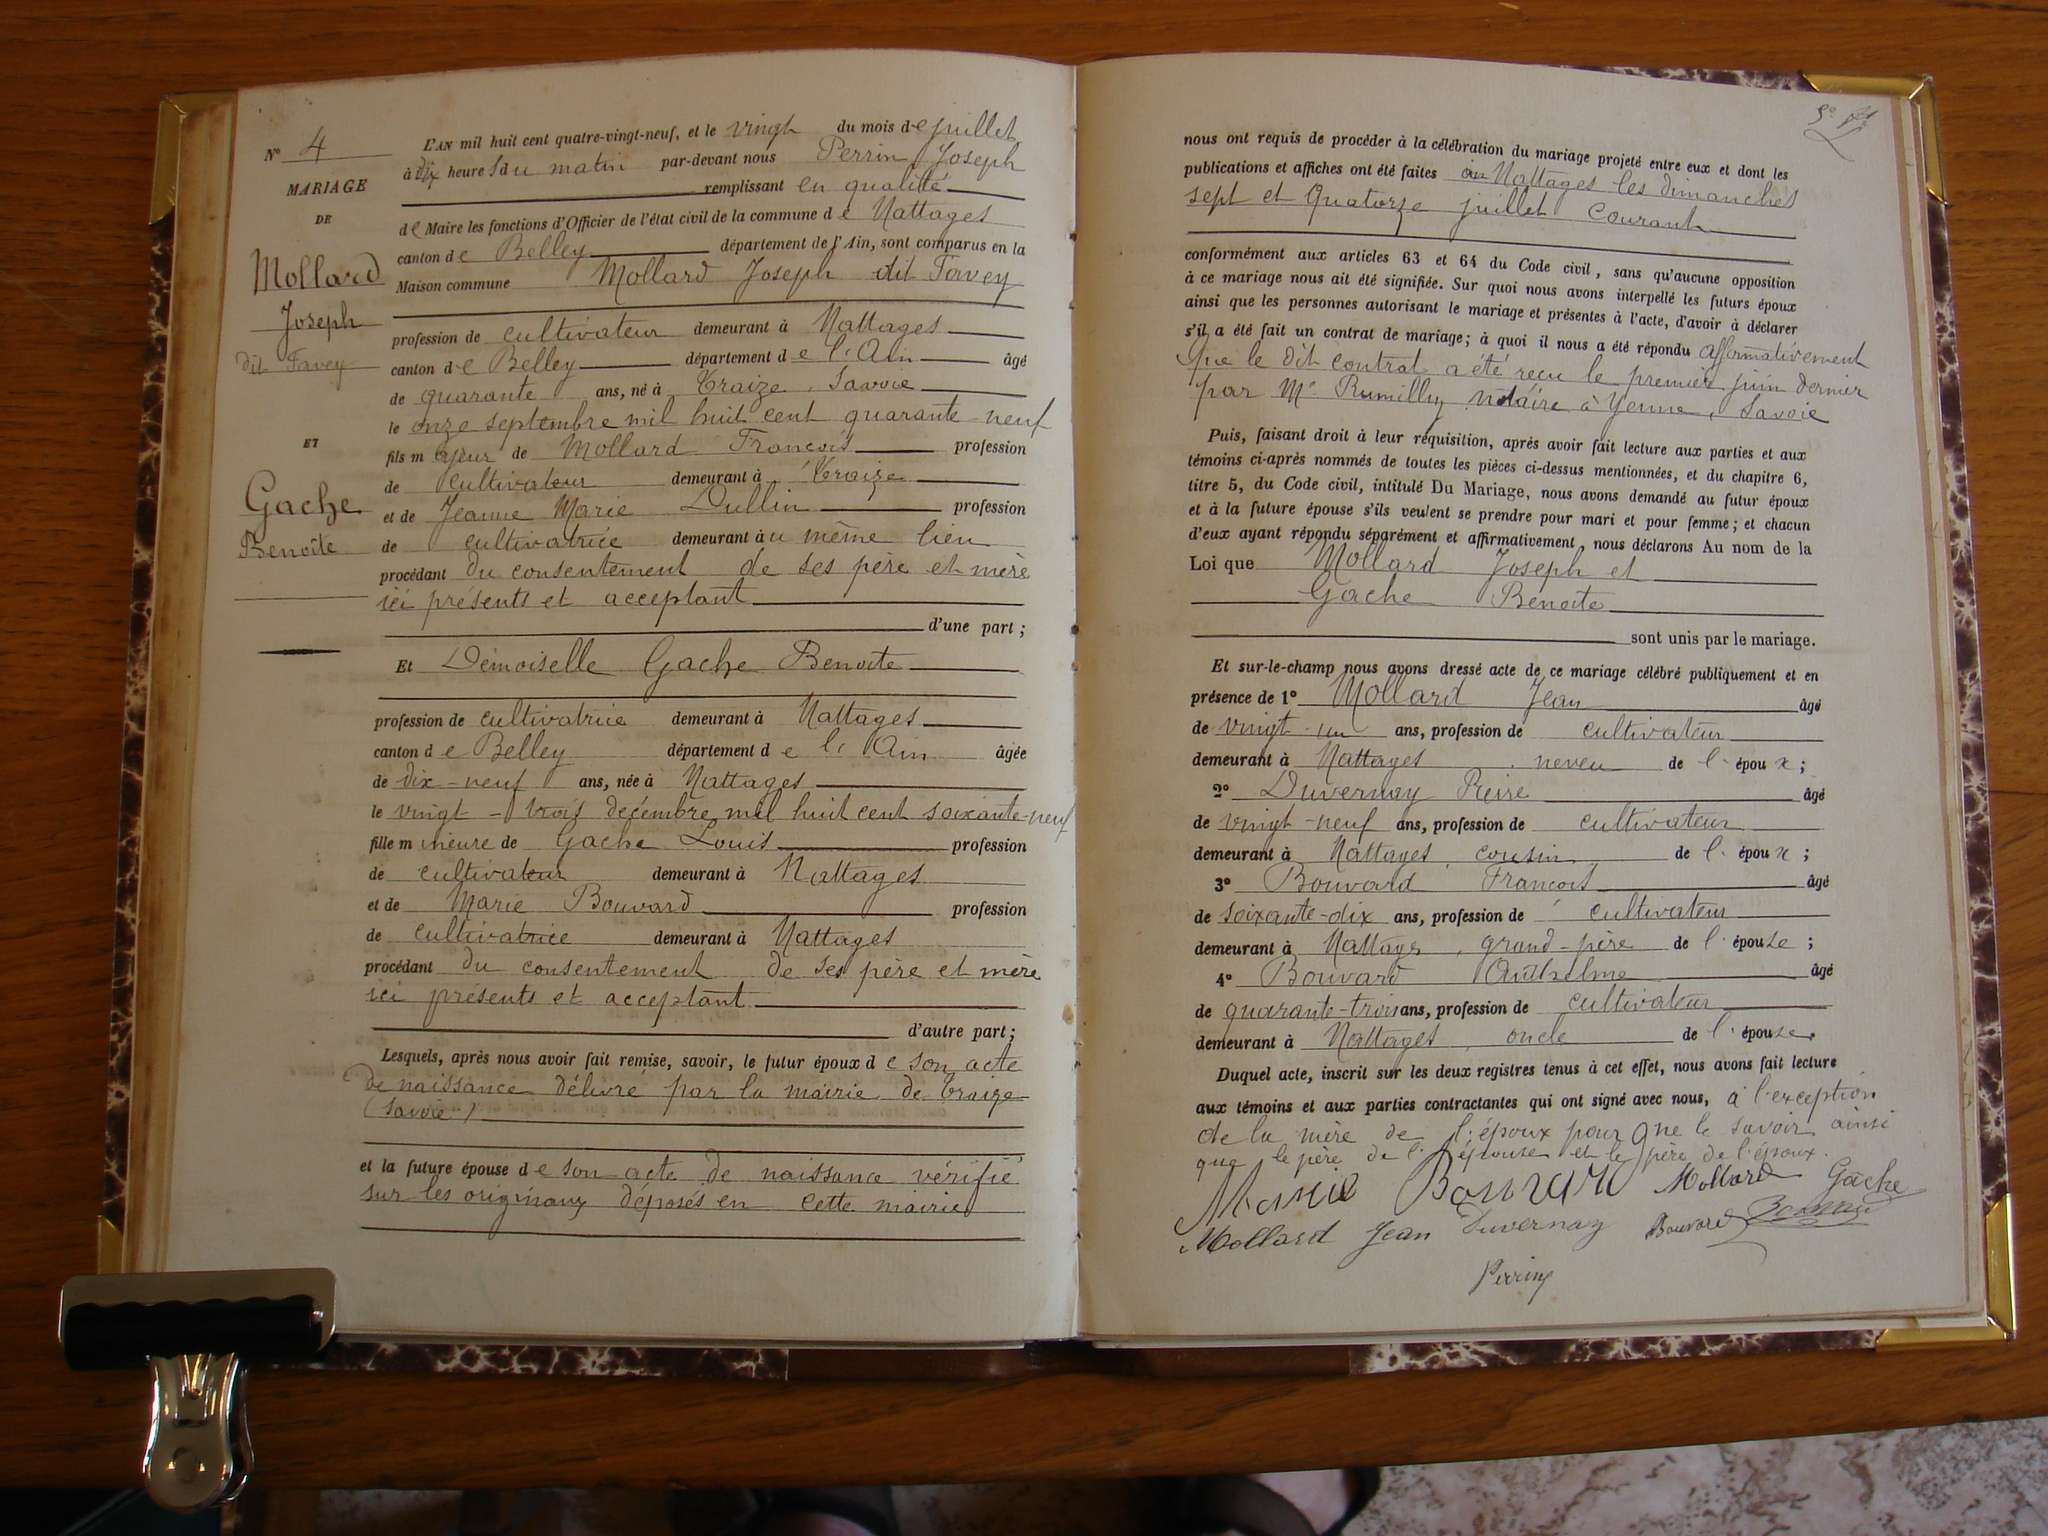 N° 4
MARIAGE
DE
Mollard
Joseph
dit Favey
ET
Gache
Benoîte
L'AN mil huit cent quatre-vingt-neuf, et le vingt du mois de juillet
à dix heures du matin par-devant nous Perrin Joseph
remplissant en qualité
de Maire les fonctions d'Officier de l'état civil de la commune de Nattages
canton de Belley département de l'Ain, sont comparus en la
Maison commune Mollard Joseph dit Favey
profession de cultivateur demeurant à Nattages
canton de Belley département de l'Ain âgé
de quarante ans, né à Traize, Savoie
le onze septembre mil huit cent quarante-neuf
fils majeur de Mollard François profession
de cultivateur demeurant à Traize
et de Jeanne Marie Dullin profession
de cultivatrice demeurant au même lieu
procédant du consentement de ses père et mère
ici présents et acceptant
d'une part ;
Et Demoiselle Gache Benoîte
profession de cultivatrice demeurant à Nattages
canton de Belley département de l'Ain âgée
de dix-neuf ans, née à Nattages
le vingt-trois décembre mil huit cent soixante-neuf
fille mineure de Gache Louis profession
de cultivateur demeurant à Nattages
et de Marie Bouvard profession
de cultivatrice demeurant à Nattages
procédant du consentement de ses père et mère
ici présents et acceptant
d'autre part ;
Lesquels, après nous avoir fait remise, savoir, le futur époux de son acte
de naissance délivré par la mairie de Traize
(Savoie)
et la future épouse de son acte de naissance vérifié
sur les originaux déposés en cette mairie
nous ont requis de procéder à la célébration du mariage projeté entre eux et dont les
publications et affiches ont été faites à Nattages les dimanches
sept et Quatorze juillet courant
conformément aux articles 63 et 64 du Code civil, sans qu'aucune opposition
à ce mariage nous ait été signifiée. Sur quoi nous avons interpellé les futurs époux
ainsi que les personnes autorisant le mariage et présentes à l'acte, d'avoir à déclarer
s'il a été fait un contrat de mariage ; à quoi il nous a été répondu affirmativement
que le dit contrat a été reçu le premier juin dernier
par Me Rumilly notaire à Yenne, Savoie
Puis, faisant droit à leur réquisition, après avoir fait lecture aux parties et aux
témoins ci-après nommés de toutes les pièces ci-dessus mentionnées, et du chapitre 6,
titre 5, du Code civil, intitulé Du Mariage, nous avons demandé au futur époux
et à la future épouse s'ils veulent se prendre pour mari et pour femme ; et chacun
d'eux ayant répondu séparément et affirmativement, nous déclarons Au nom de la
Loi que Mollard Joseph et
Gache Benoîte
sont unis par le mariage.
Et sur-le-champ nous avons dressé acte de ce mariage célébré publiquement et en
présence de 1° Mollard Jean âgé
de vingt-un ans, profession de cultivateur
demeurant à Nattages, neveu de l'époux ;
2° Duvernay Pierre âgé
de vingt-neuf ans, profession de cultivateur
demeurant à Nattages, cousin de l'époux ;
3° Bouvard François âgé
de soixante-dix ans, profession de cultivateur
demeurant à Nattages, grand-père de l'épouse ;
4° Bouvard Anthelme âgé
de quarante-trois ans, profession de cultivateur
demeurant à Nattages, oncle de l'épouse.
Duquel acte, inscrit sur les deux registres tenus à cet effet, nous avons fait lecture
aux témoins et aux parties contractantes qui ont signé avec nous, à l'exception
de la mère de l'époux pour ne le savoir ainsi
que le père de l'épouse et le père de l'époux.
Marie Bouvard Mollard Gache
Mollard Jean Duvernay Bouvard Bouvard
Perrin